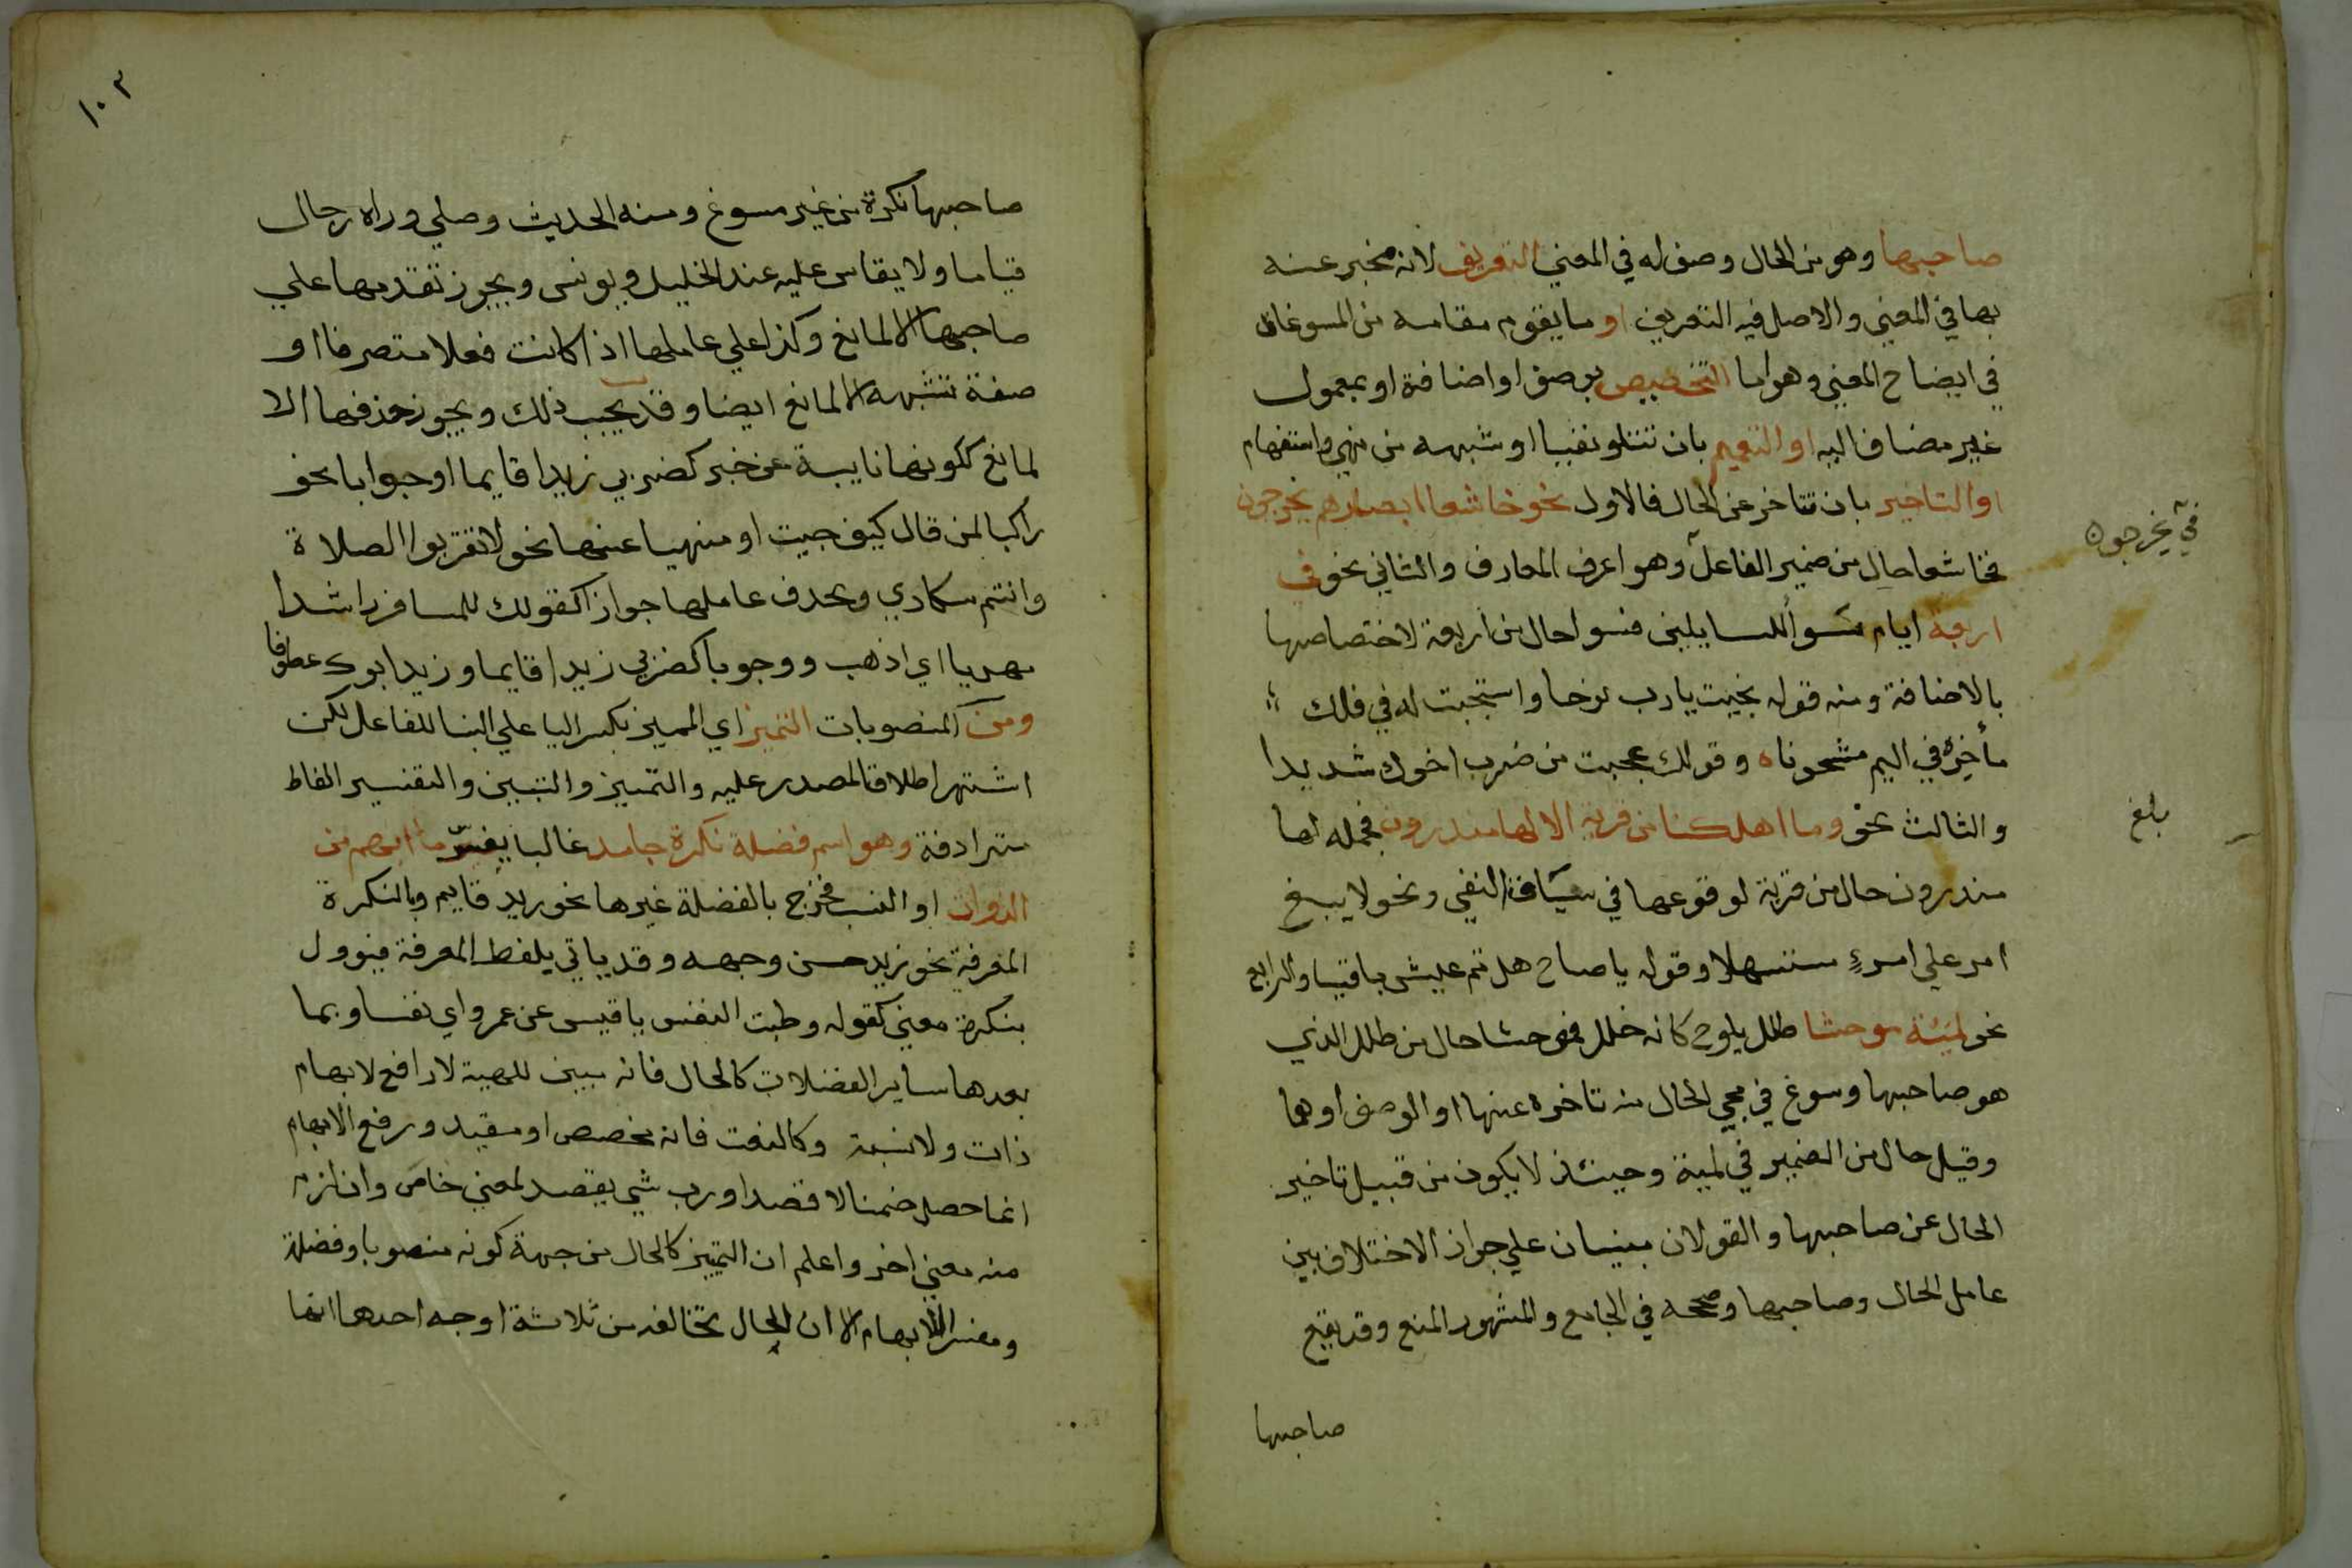 صاحبها وهو من الحال وصف له في المعني التعريف لانه مخبر عنه
بها في المعني والاصل فيه التعريف او ما يقوم مقامه من المسوغات
في ايضاح المعني وهو اما التخصيص بوصف او اضافة او بمعمول
غير مضاف اليه او التعميم بان تتلو نفيا او شبهه من نهي واستفهام
او التاخير بان تتاخر عن الحال فالاول نحو خاشعا ابصارهم يخرجون
فخاشعا حال من ضمير الفاعل وهو اعرف المعارف والثاني نحو في
اربعة ايام سواً للسايلين فسوا حال من اربعة لاختصاصها
بالاضافة ومنه قوله نجيت يارب نوحا واستجبت له في فلك
ماخره في اليم مشحوناه وقولك عجبت من ضرب اخوك شديدا
والثالث نحو وما اهلكنا من قرية الا لها منذرون فجملة لها
منذرون حال من قرية لوقوعها في سياق النفي ونحو لا يبغ
امر علي امرءٍ مستسهلا وقوله ياصاح هل تم عيش باقيا والرابع
نحو لمَيّة موحشا طلل يلوح كانه خلل فموحشا حال من طلل الذي
هو صاحبها وسوغ في مجي الحال منه تاخره عنها او الوصف او هما
وقيل حال من الضمير في لمية وحينئذ لا يكون من قبيل تاخير
الحال عن صاحبها والقولان مبنيان علي جواز الاختلاف بين
عامل الحال وصاحبها وصححه في الجامع والمشهور المنع وقد يقع
صاحبها
في يخرجون
بلغ
١٠٣
صاحبها نكرة من غير مسوغ ومنه الحديث وصلي وراه رجال
قياما ولا يقاس عليه عند الخليل ويونس ويجوز تقدمها علي
صاحبها الا لمانع وكذا علي عاملها اذا كانت فعلا متصرفا او
صفة تشبهه الا لمانع ايضا وقد يجب ذلك ويجوز حذفها الا
لمانع ككونها نايبة عن خبر كضربي زيدا قايما او جوابا نحو
راكبا لمن قال كيف جيت او منهيا عنها نحو لا تقربوا الصلاة
وانتم سكاري ويحذف عاملها جوازا كقولك للمسافر راشدا
مهديا اي اذهب ووجوبا كضربي زيدا قايما وزيد ابوك عطوفا
ومن المنصوبات التمييز اي المميز بكسر اليا علي البنا للفاعل لكن
اشتهر اطلاق المصدر عليه والتمييز والتبيين والتفسير الفاظ
مترادفة وهو اسم فضلة نكرة جامد غالبا يفسر ما انبهم من
الذوات او النسب فخرج بالفضلة غيرها نحو زيد قايم وبالنكرة
المعرفة نحو زيد حسن وجهه وقد ياتي بلفظ المعرفة فيوول
بنكرة معني كقوله وطبت النفس ياقيس عن عمرو اي نفسا وبما
بعدها ساير الفضلات كالحال فانه يبين للهيية لا رافع لابهام
ذات ولا نسبة وكالنعت فانه مخصص او مقيد ورفع الابهام
انما حصل ضمنا لا قصدا ورب شي يقصد لمعني خاص وان لزم
منه معني اخر واعلم ان التمييز كالحال من جهة كونه منصوبا وفضلة
ومفسرا للابهام الا ان الحال تخالفه من ثلاثة اوجه احدها انها